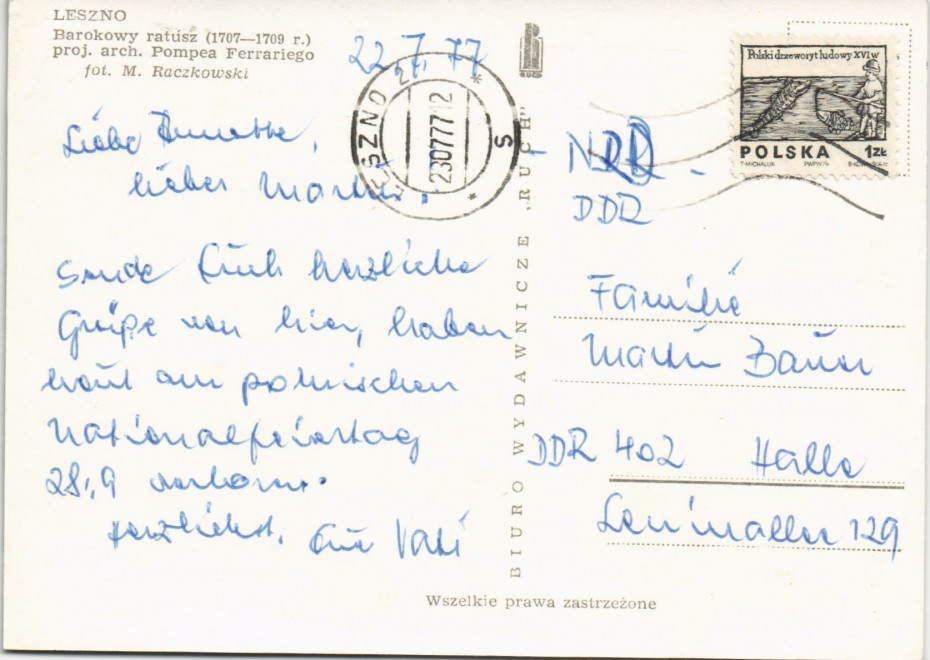 LESZNO
Barokowy ratusz (1707—1709 r.)
proj. arch. Pompea Ferrariego
fot. M. Raczkowski
22.7.77
Liebe Annette,
lieber Martin.
Sende Euch herzliche
Grüße von hier, haben
heut am polnischen
Nationalfeiertag
28:9
herzlichst. Eure Vati
LESZNO 2
230777 12
S
RUCH
BIURO WYDAWNICZE „RUCH"
Polski drzeworyt ludowy XVI w
POLSKA 1 ZŁ
T. MICHALUK PWPW 74
- NRD -
DDR
Familie
Martin Bauer
DDR 402 Halle
Leninallee 129
Wszelkie prawa zastrzeżone